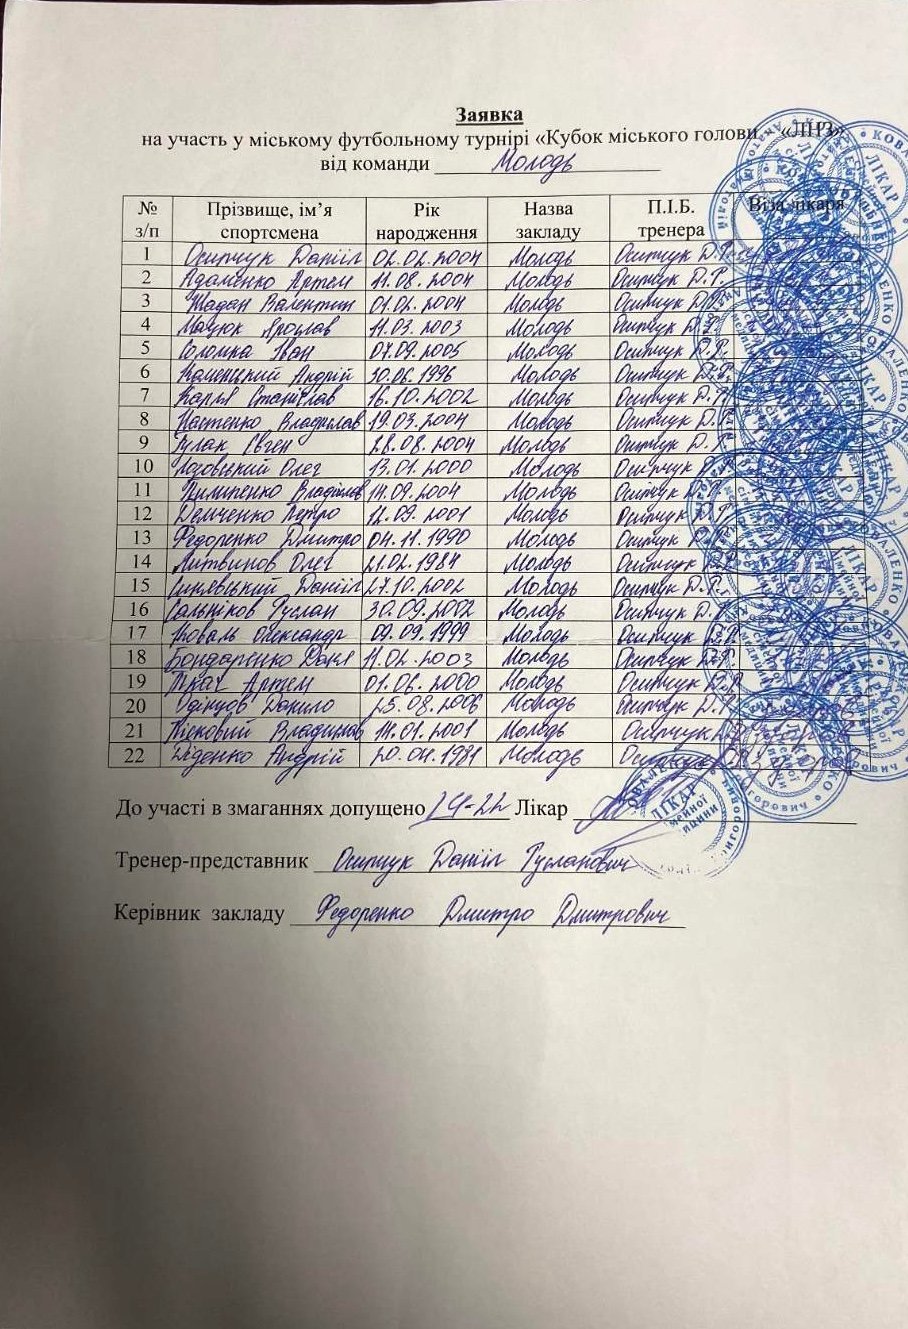 Заявка
на участь у міському футбольному турнірі «Кубок міського голови - «ЛІРЗ»
від команди Молодь
№ з/п Прізвище, ім’я спортсмена Рік народження Назва закладу П.І.Б. тренера Віза лікаря
1 Осипчук Данііл 02.02.2004 Молодь Осипчук Д.Р.
2 Адаменко Артем 11.08.2004 Молодь Осипчук Д.Р.
3 Жадан Валентин 01.02.2004 Молодь Осипчук Д.Р.
4 Мацюк Ярослав 11.03.2003 Молодь Осипчук Д.Р.
5 Соломка Іван 07.09.2005 Молодь Осипчук Д.Р.
6 Камінський Андрій 30.06.1996 Молодь Осипчук Д.Р.
7 Станіслав 16.10.2002 Молодь Осипчук Д.Р.
8 Владислав 19.03.2004 Молодь Осипчук Д.Р.
9 Євген 28.08.2004 Молодь Осипчук Д.Р.
10 Олег 13.01.2000 Молодь Осипчук Д.Р.
11 Пилипенко Владислав 14.09.2004 Молодь Осипчук Д.Р.
12 Демченко Петро 12.09.2001 Молодь Осипчук Д.Р.
13 Федоренко Дмитро 04.11.1990 Молодь Осипчук Д.Р.
14 Литвинов Олег 21.02.1987 Молодь Осипчук Д.Р.
15 Данііл 27.10.2002 Молодь Осипчук Д.Р.
16 Сальніков Руслан 30.09.2002 Молодь Осипчук Д.Р.
17 Коваль Олександр 09.09.1999 Молодь Осипчук Д.Р.
18 Бондаренко Даніл 11.02.2003 Молодь Осипчук Д.Р.
19 Ткач Артем 01.06.2000 Молодь Осипчук Д.Р.
20 Одінцов Данило 25.08.2006 Молодь Осипчук Д.Р.
21 Владислав 14.01.2001 Молодь Осипчук Д.Р.
22 Діденко Андрій 20.04.1981 Молодь Осипчук Д.Р.
До участі в змаганнях допущено Лікар
ЛІКАР
Тренер-представник Осипчук Данііл Русланович
Керівник закладу Федоренко Дмитро Дмитрович